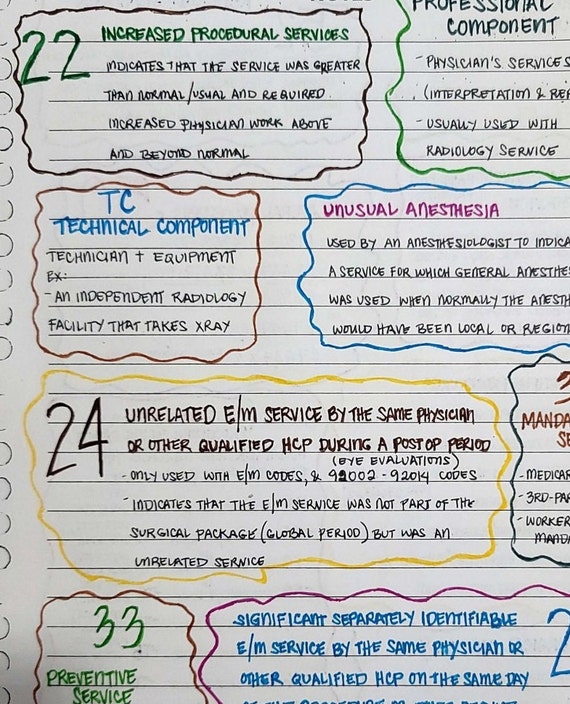 22
INCREASED PROCEDURAL SERVICES
INDICATES THAT THE SERVICE WAS GREATER
THAN NORMAL/USUAL AND REQUIRED
INCREASED PHYSICIAN WORK ABOVE
AND BEYOND NORMAL
PROFESSIONAL
COMPONENT
- PHYSICIAN'S SERVICES
(INTERPRETATION &
- USUALLY USED WITH
RADIOLOGY SERVICE
TC
TECHNICAL COMPONENT
TECHNICIAN + EQUIPMENT
EX:
- AN INDEPENDENT RADIOLOGY
FACILITY THAT TAKES XRAY
UNUSUAL ANESTHESIA
USED BY AN ANESTHESIOLOGIST TO
A SERVICE FOR WHICH GENERAL
WAS USED WHEN NORMALLY THE
WOULD HAVE BEEN LOCAL OR
24
UNRELATED E/M SERVICE BY THE SAME PHYSICIAN
OR OTHER QUALIFIED HCP DURING A POSTOP PERIOD
(EYE EVALUATIONS)
- ONLY USED WITH E/M CODES, & 92002 - 92014 CODES
- INDICATES THAT THE E/M SERVICE WAS NOT PART OF THE
SURGICAL PACKAGE (GLOBAL PERIOD) BUT WAS AN
UNRELATED SERVICE
3
MANDA
SE
- MEDICAR
- 3RD-PA
- WORKER
MANDA
33
PREVENTIVE
SERVICE
- SIGNIFICANT SEPARATELY IDENTIFIABLE
E/M SERVICE BY THE SAME PHYSICIAN OR
OTHER QUALIFIED HCP ON THE SAME DAY
2